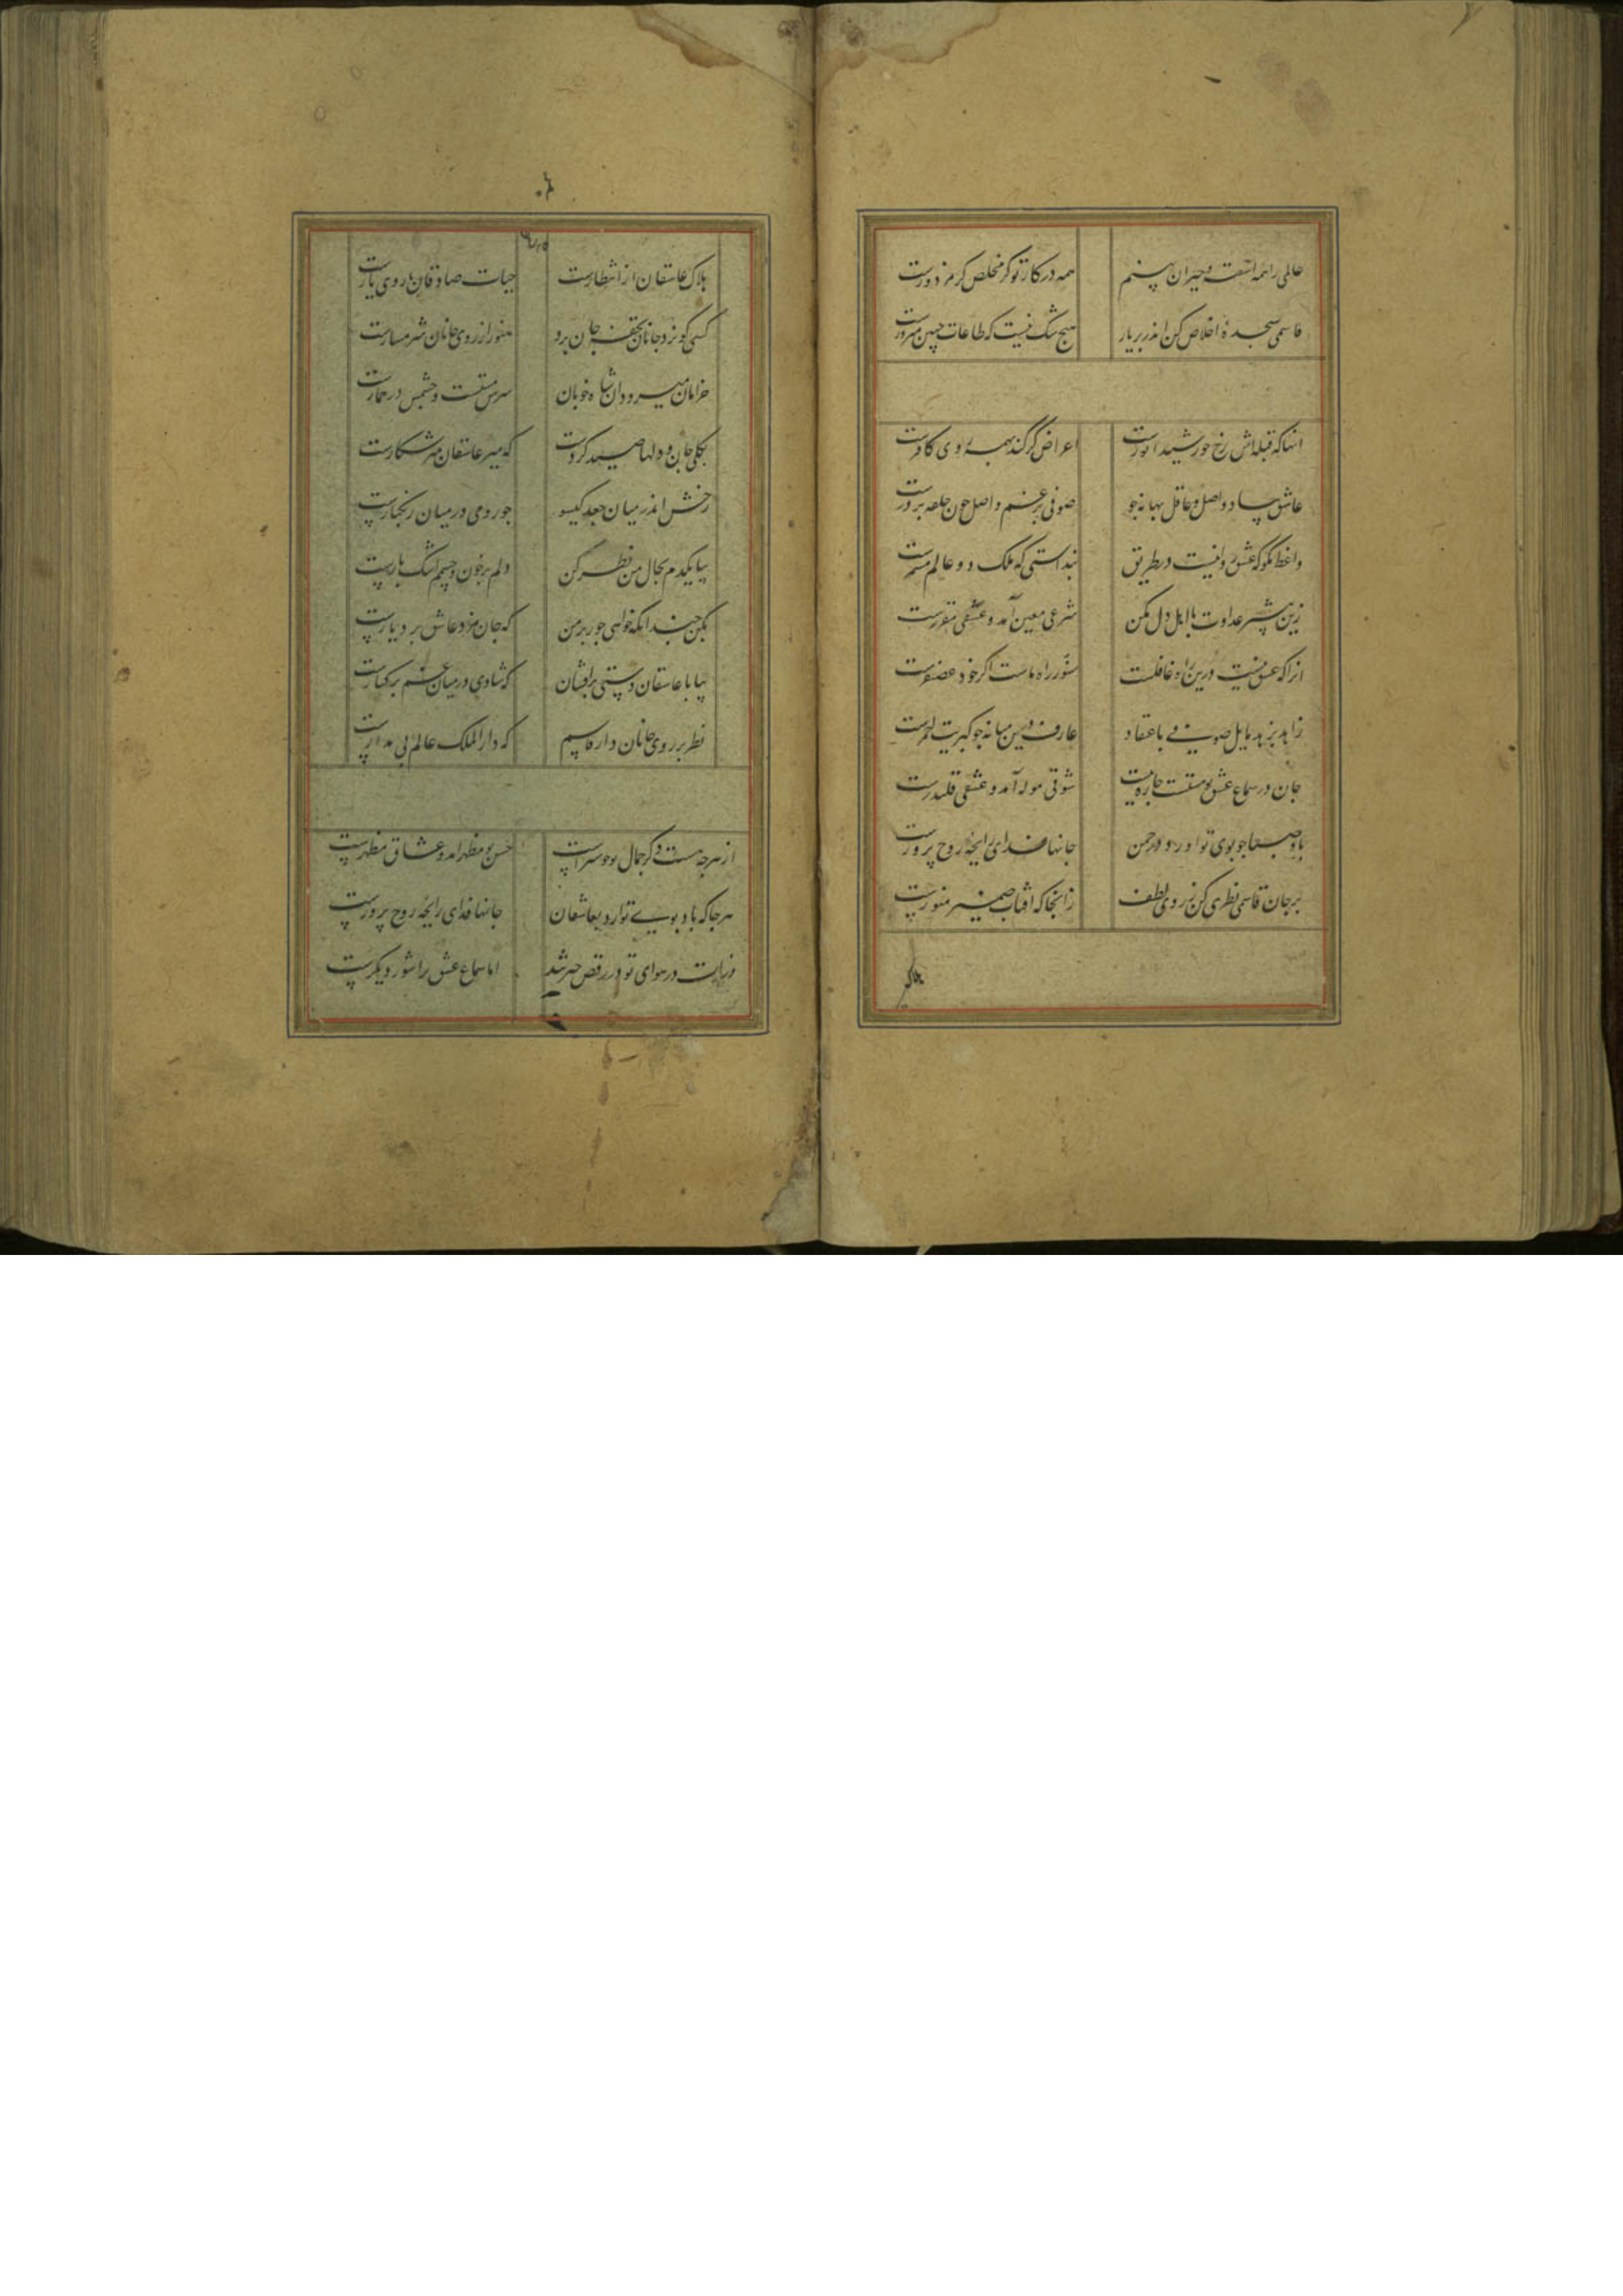 عالمی را همه آشفته و حیران بینم همه در کار تو گر مخلص گر مزدورست
قاسمی سجدهٔ اخلاص کن اندر بر یار هیچ شک نیست که طاعات چنین مبرورست
آنها که قبله‌اش رخ خورشید انورست اعراض گر کند بهمه روی کافرست
عاشق و اصل و عاقل بهانه جو صوفی بزعم واصل چون حلقه بر درست
واعظ مگو که عشق روا نیست در طریق نداستی که ملک دو عالم
زین بیشتر عداوت با اهل دل مکن شرعی معین آمد و عشقی مقررست
آنرا که عشق نیست درین راه غافلست ستور راه ماست اگر خود غضنفرست
زاهد بزهد مایل صوفی باعتقاد عارف درین میانه چو کبریت احمرست
جان در سماع عشق تو مستست چاره نیست شوقی موله آمد و عشقی قلندرست
باد صبا چو بوی تو آورد در چمن جانها فدای رایحهٔ روح پرورست
بر جان قاسمی نظری کن ز روی لطف زانجا که آفتاب ضمیر منورست
هلاک عاشقان از انتظارست حیات صادقان با روی یارست
کسی کو نزد جانان تحفه جان برد هنوز از روی جانان شرمسارست
خرامان میرود آن شاه خوبان سرش مستست و چشمش در خمارست
بکلی جان و دلها صید کردست که میر عاشقان میر شکارست
رخش اندر میان جعد گیسو چو رومی در میان زنگبارست
بیا یکدم بحال من نظر کن دلم پر خون و چشمم اشک بارست
بکن چندانکه خواهی جور بر من که جان مزد عاشق بردبارست
بیا با عاشقان دستی برافشان که شادی در میان غم بر کنارست
نظر بر روی جانان دار قاسم که دار الملک عالم بی مدارست
از هرچه هست ذکر جمال تو حسن تو مظهر آمد و عشاق مظهرست
هرجا که باد بوی تو آرد بعاشقان جانها فدای رایحهٔ روح پرورست
ذرات در هوای تو در رقص اما سماع عشق را شور دیگرست